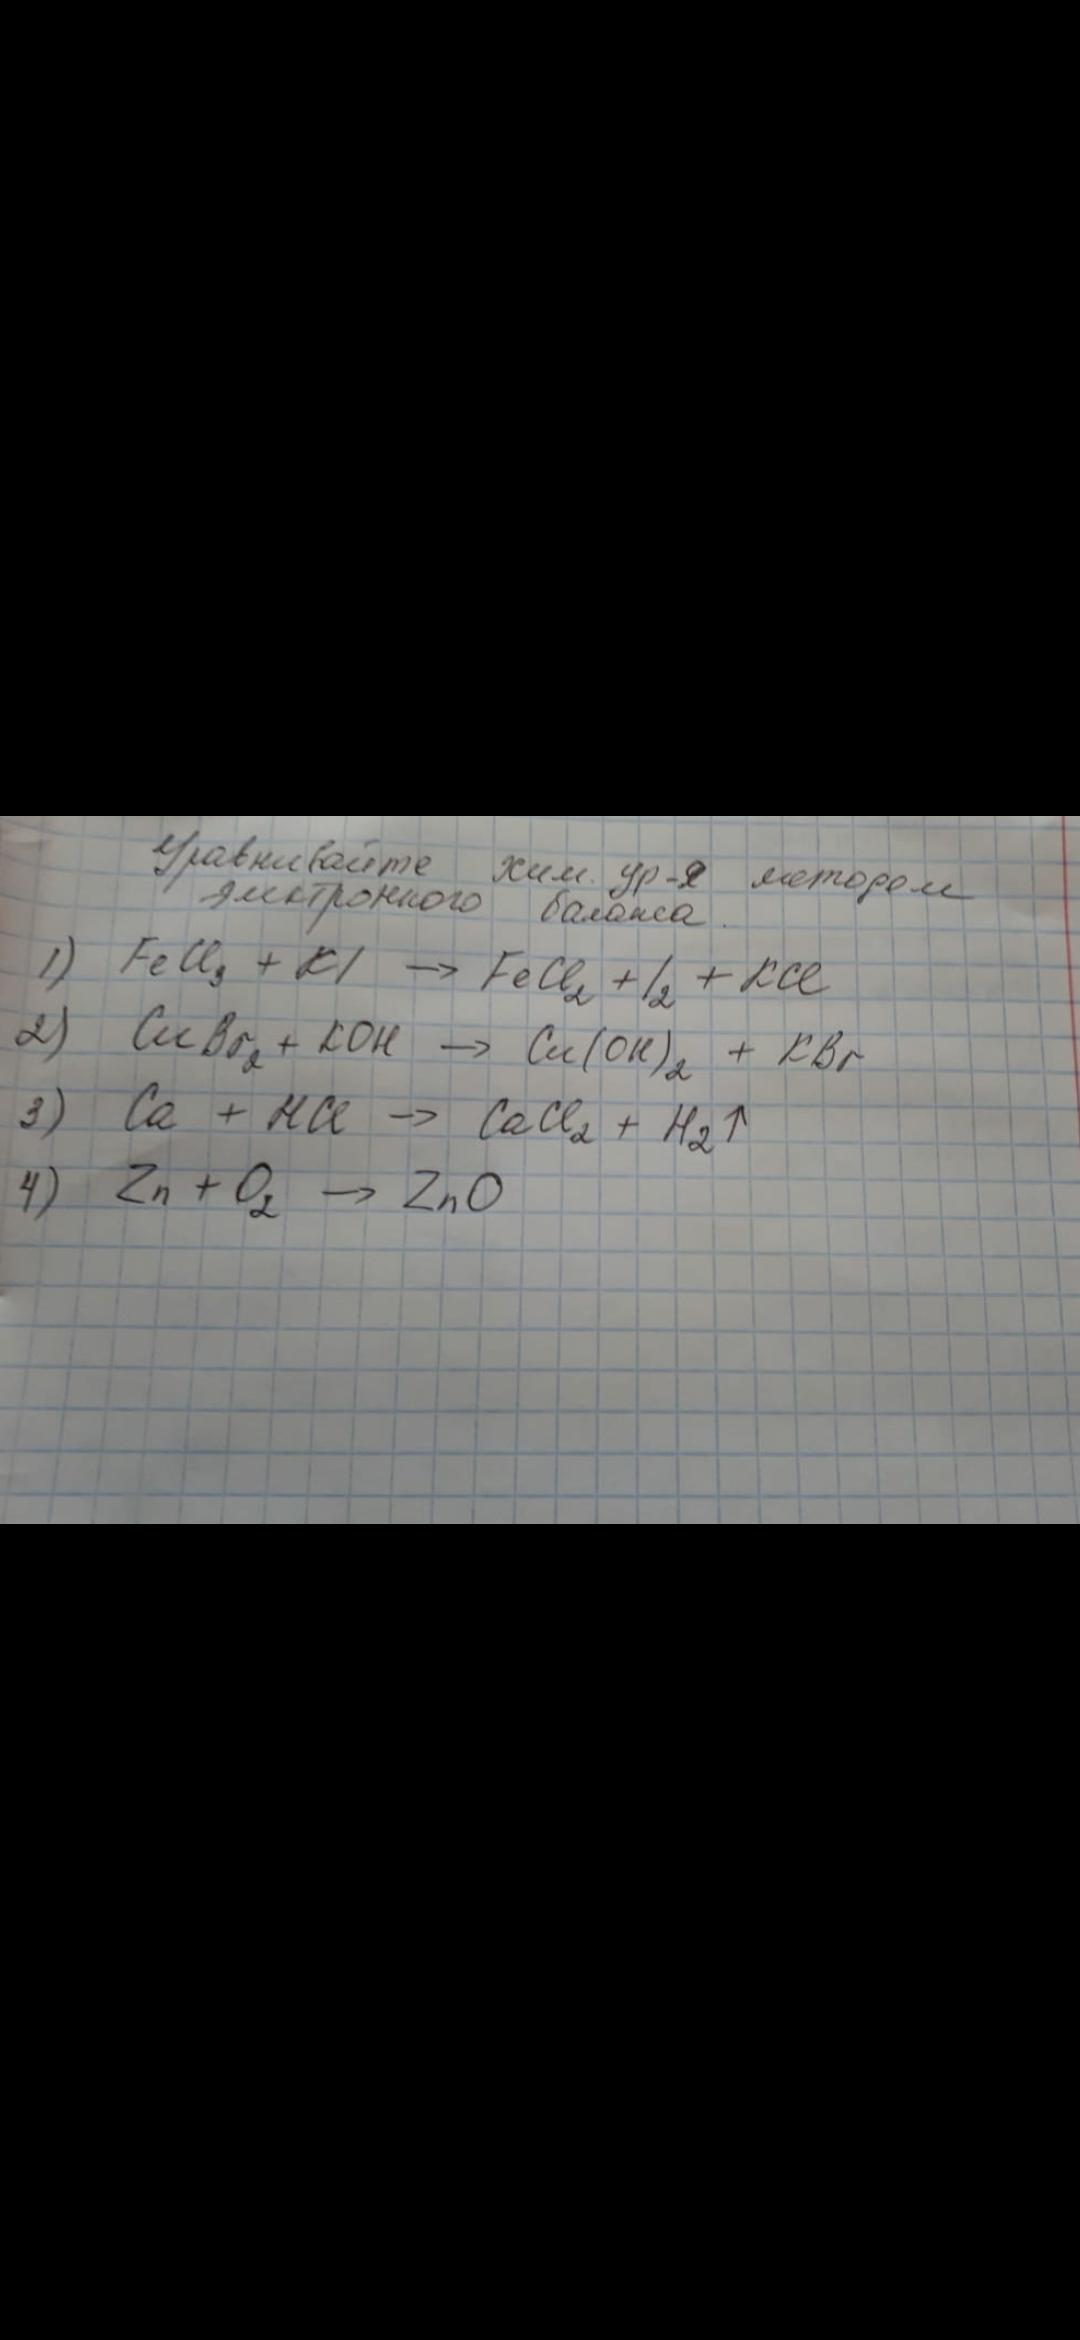 Уравнивайте хим. ур-я методом
электронного баланса.
1) FeCl₃ + KI → FeCl₂ + I₂ + KCl
2) CuBr₂ + KOH → Cu(OH)₂ + KBr
3) Ca + HCl → CaCl₂ + H₂↑
4) Zn + O₂ → ZnO